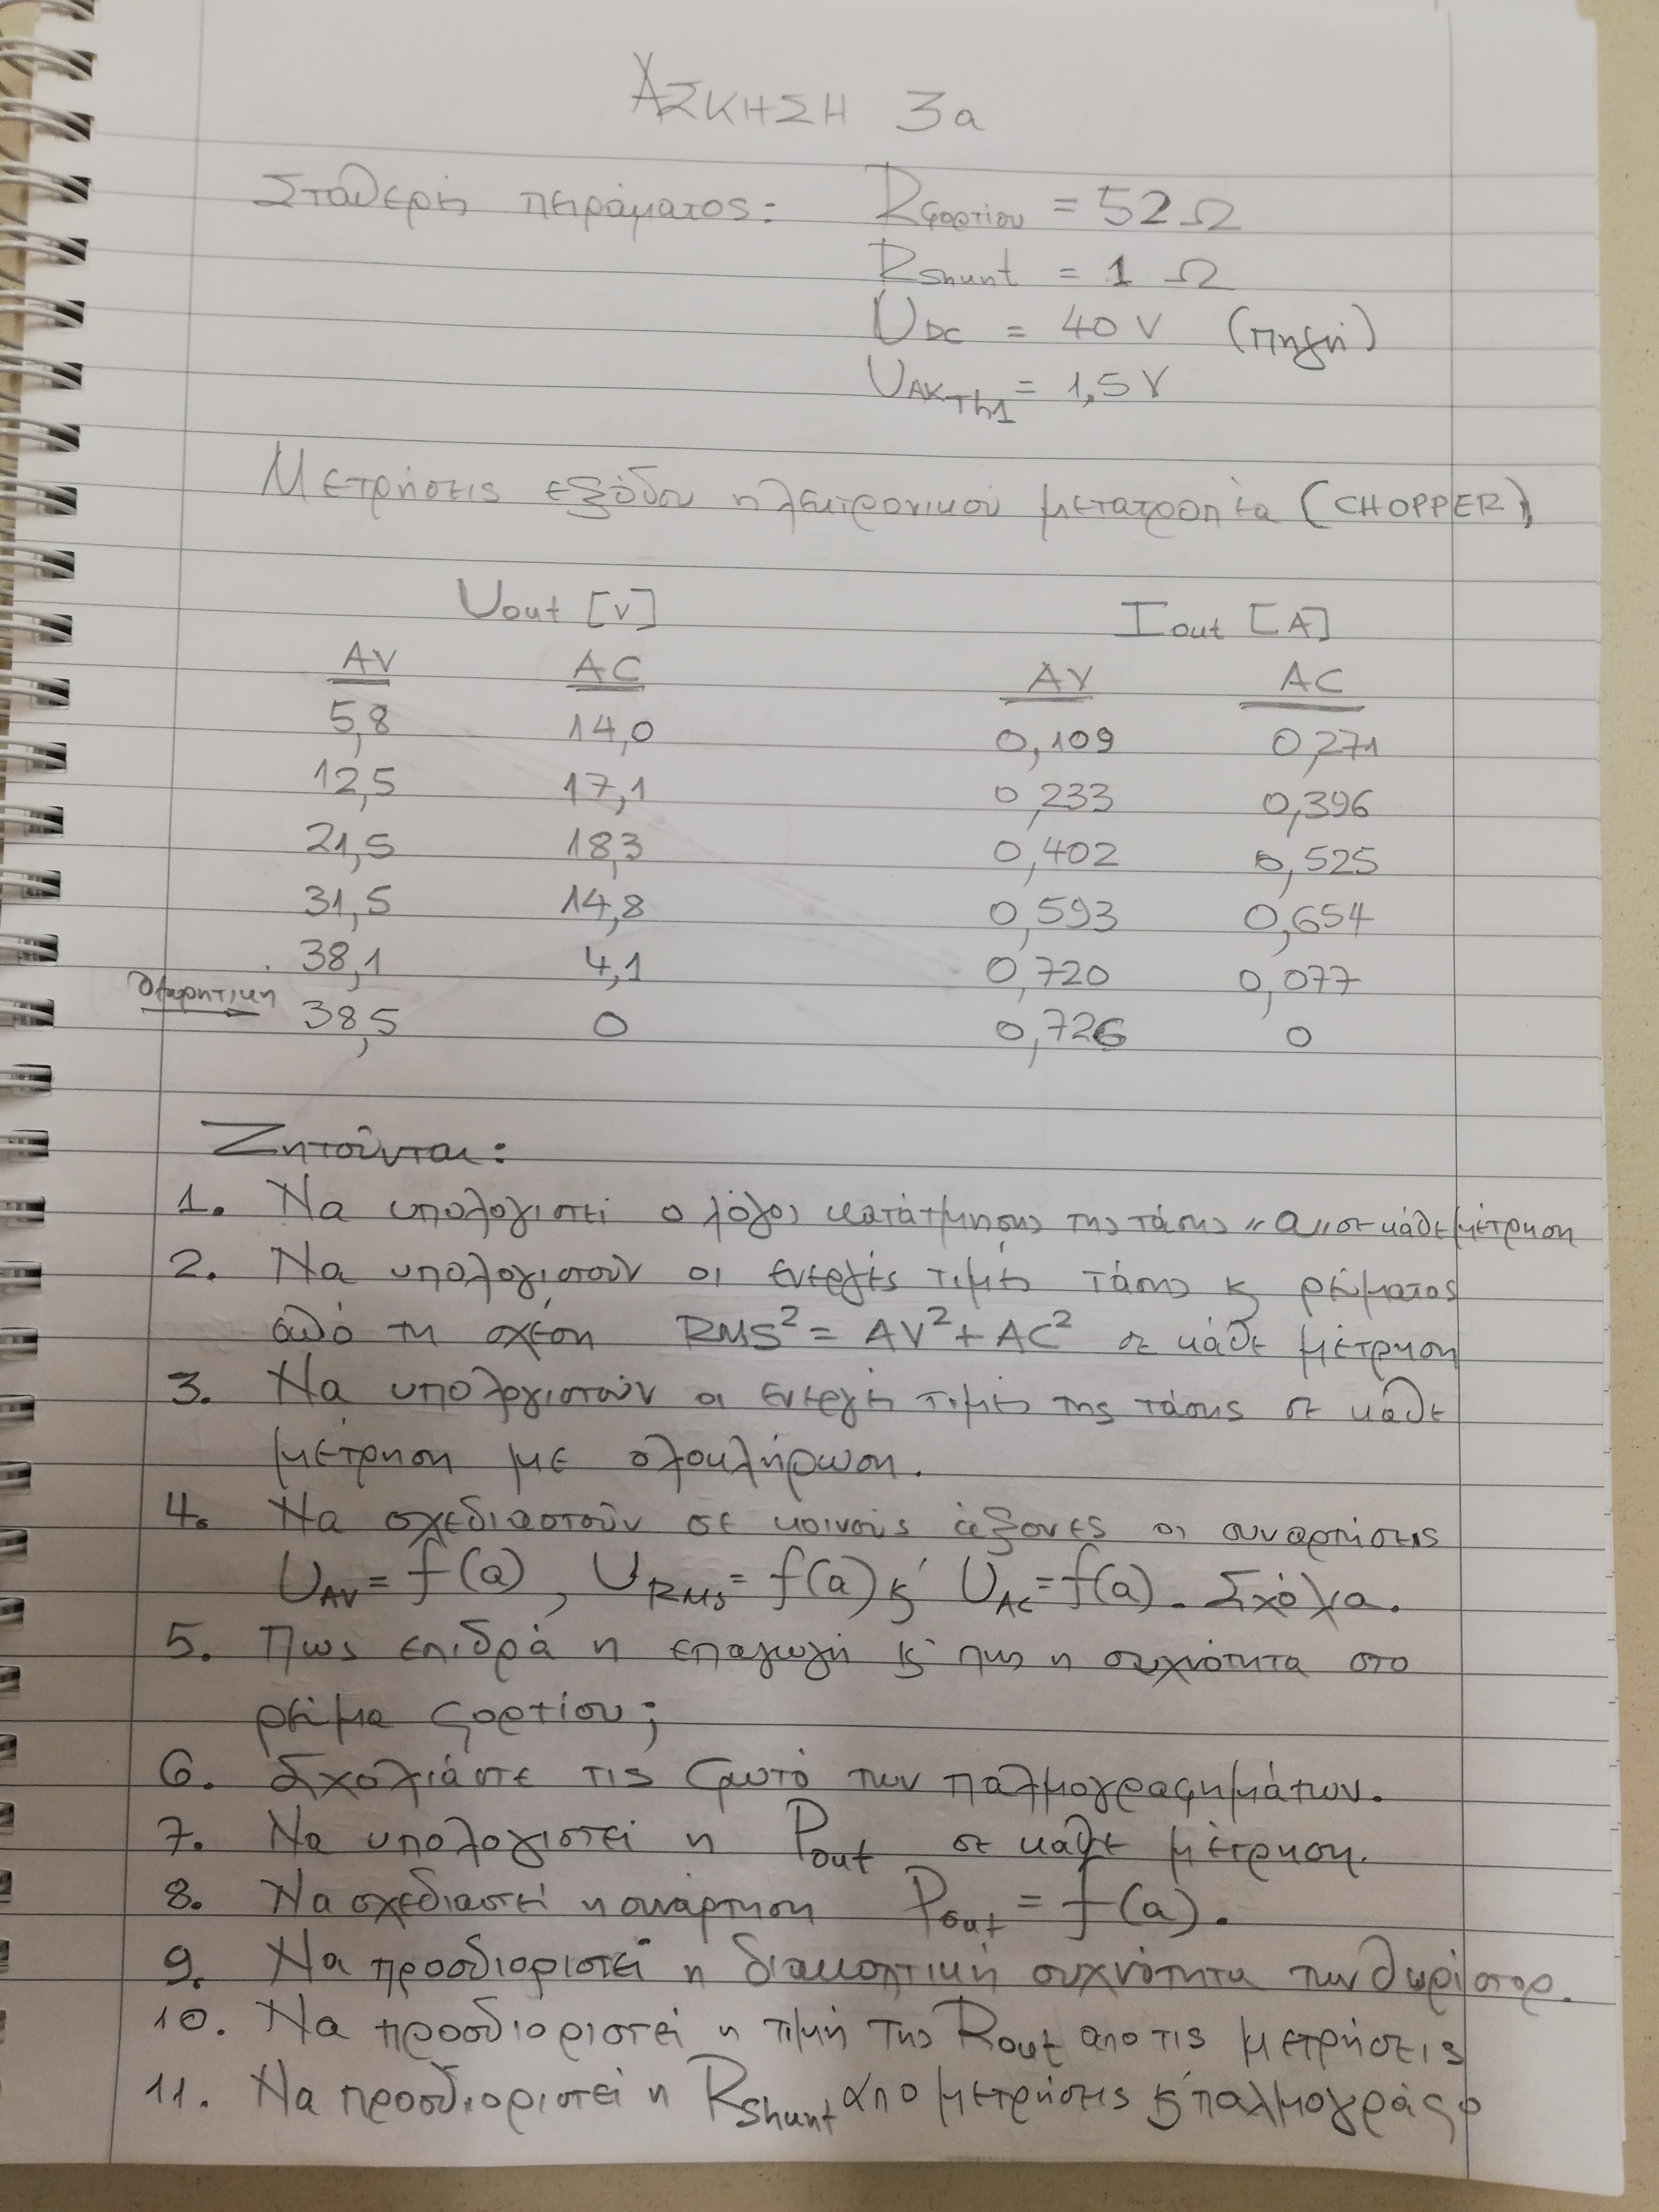 ΑΣΚΗΣΗ 3α
Σταθερές πειράματος: Rφορτίου = 52 Ω
Rshunt = 1 Ω
UDC = 40 V (πηγή)
UAKTh1 = 1,5 V
Μετρήσεις εξόδου ηλεκτρονικού μετατροπέα (CHOPPER)
Uout [V] Iout [A]
AV AC AV AC
5,8 14,0 0,109 0,271
12,5 17,1 0,233 0,396
21,5 18,3 0,402 0,525
31,5 14,8 0,593 0,654
38,1 4,1 0,720 0,077
θεωρητική → 38,5 0 0,726 0
Ζητούνται:
1. Να υπολογιστεί ο λόγος κατάτμησης της τάσης "α" σε κάθε μέτρηση
2. Να υπολογιστούν οι ενεργές τιμές τάσης ϗ ρεύματος
από τη σχέση RMS² = AV² + AC² σε κάθε μέτρηση
3. Να υπολογιστούν οι ενεργές τιμές της τάσης σε κάθε
μέτρηση με ολοκλήρωση.
4. Να σχεδιαστούν σε κοινούς άξονες οι συναρτήσεις
UAV = f(α), URMS = f(α) ϗ UAC = f(α). Σχόλια.
5. Πως επιδρά η επαγωγή ϗ πως η συχνότητα στο
ρεύμα φορτίου;
6. Σχολιάστε τις φωτό των παλμογραφημάτων.
7. Να υπολογιστεί η Pout σε κάθε μέτρηση.
8. Να σχεδιαστεί η συνάρτηση Pout = f(α).
9. Να προσδιοριστεί η διακοπτική συχνότητα των θυρίστορ.
10. Να προσδιοριστεί η τιμή της Rout από τις μετρήσεις
11. Να προσδιοριστεί η Rshunt από μετρήσεις ϗ παλμογράφο